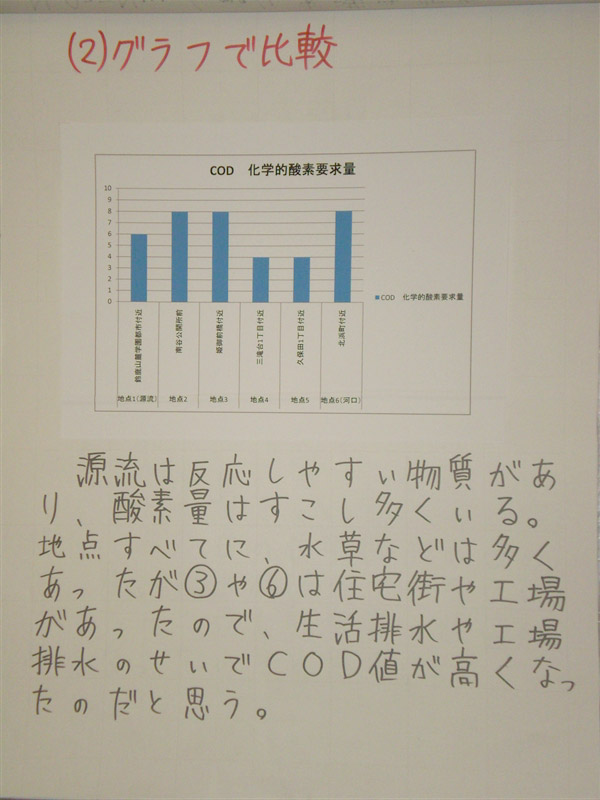 (2)グラフで比較
COD 化学的酸素要求量
10
9
8
7
6
5
4
3
2
1
0
鈴鹿山麓学園都市付近
南谷公園所前
姫御前橋付近
三滝台1丁目付近
久保田1丁目付近
北浜町付近
地点1(源流) 地点2 地点3 地点4 地点5 地点6(河口)
COD 化学的酸素要求量
源流は反応しやすい物質があ
り、酸素量はすこし多くいる。
地点すべてに、水草などは多く
あったが③や⑥は住宅街や工場
があったので、生活排水や工場
排水のせいでCOD値が高くなっ
たのだと思う。